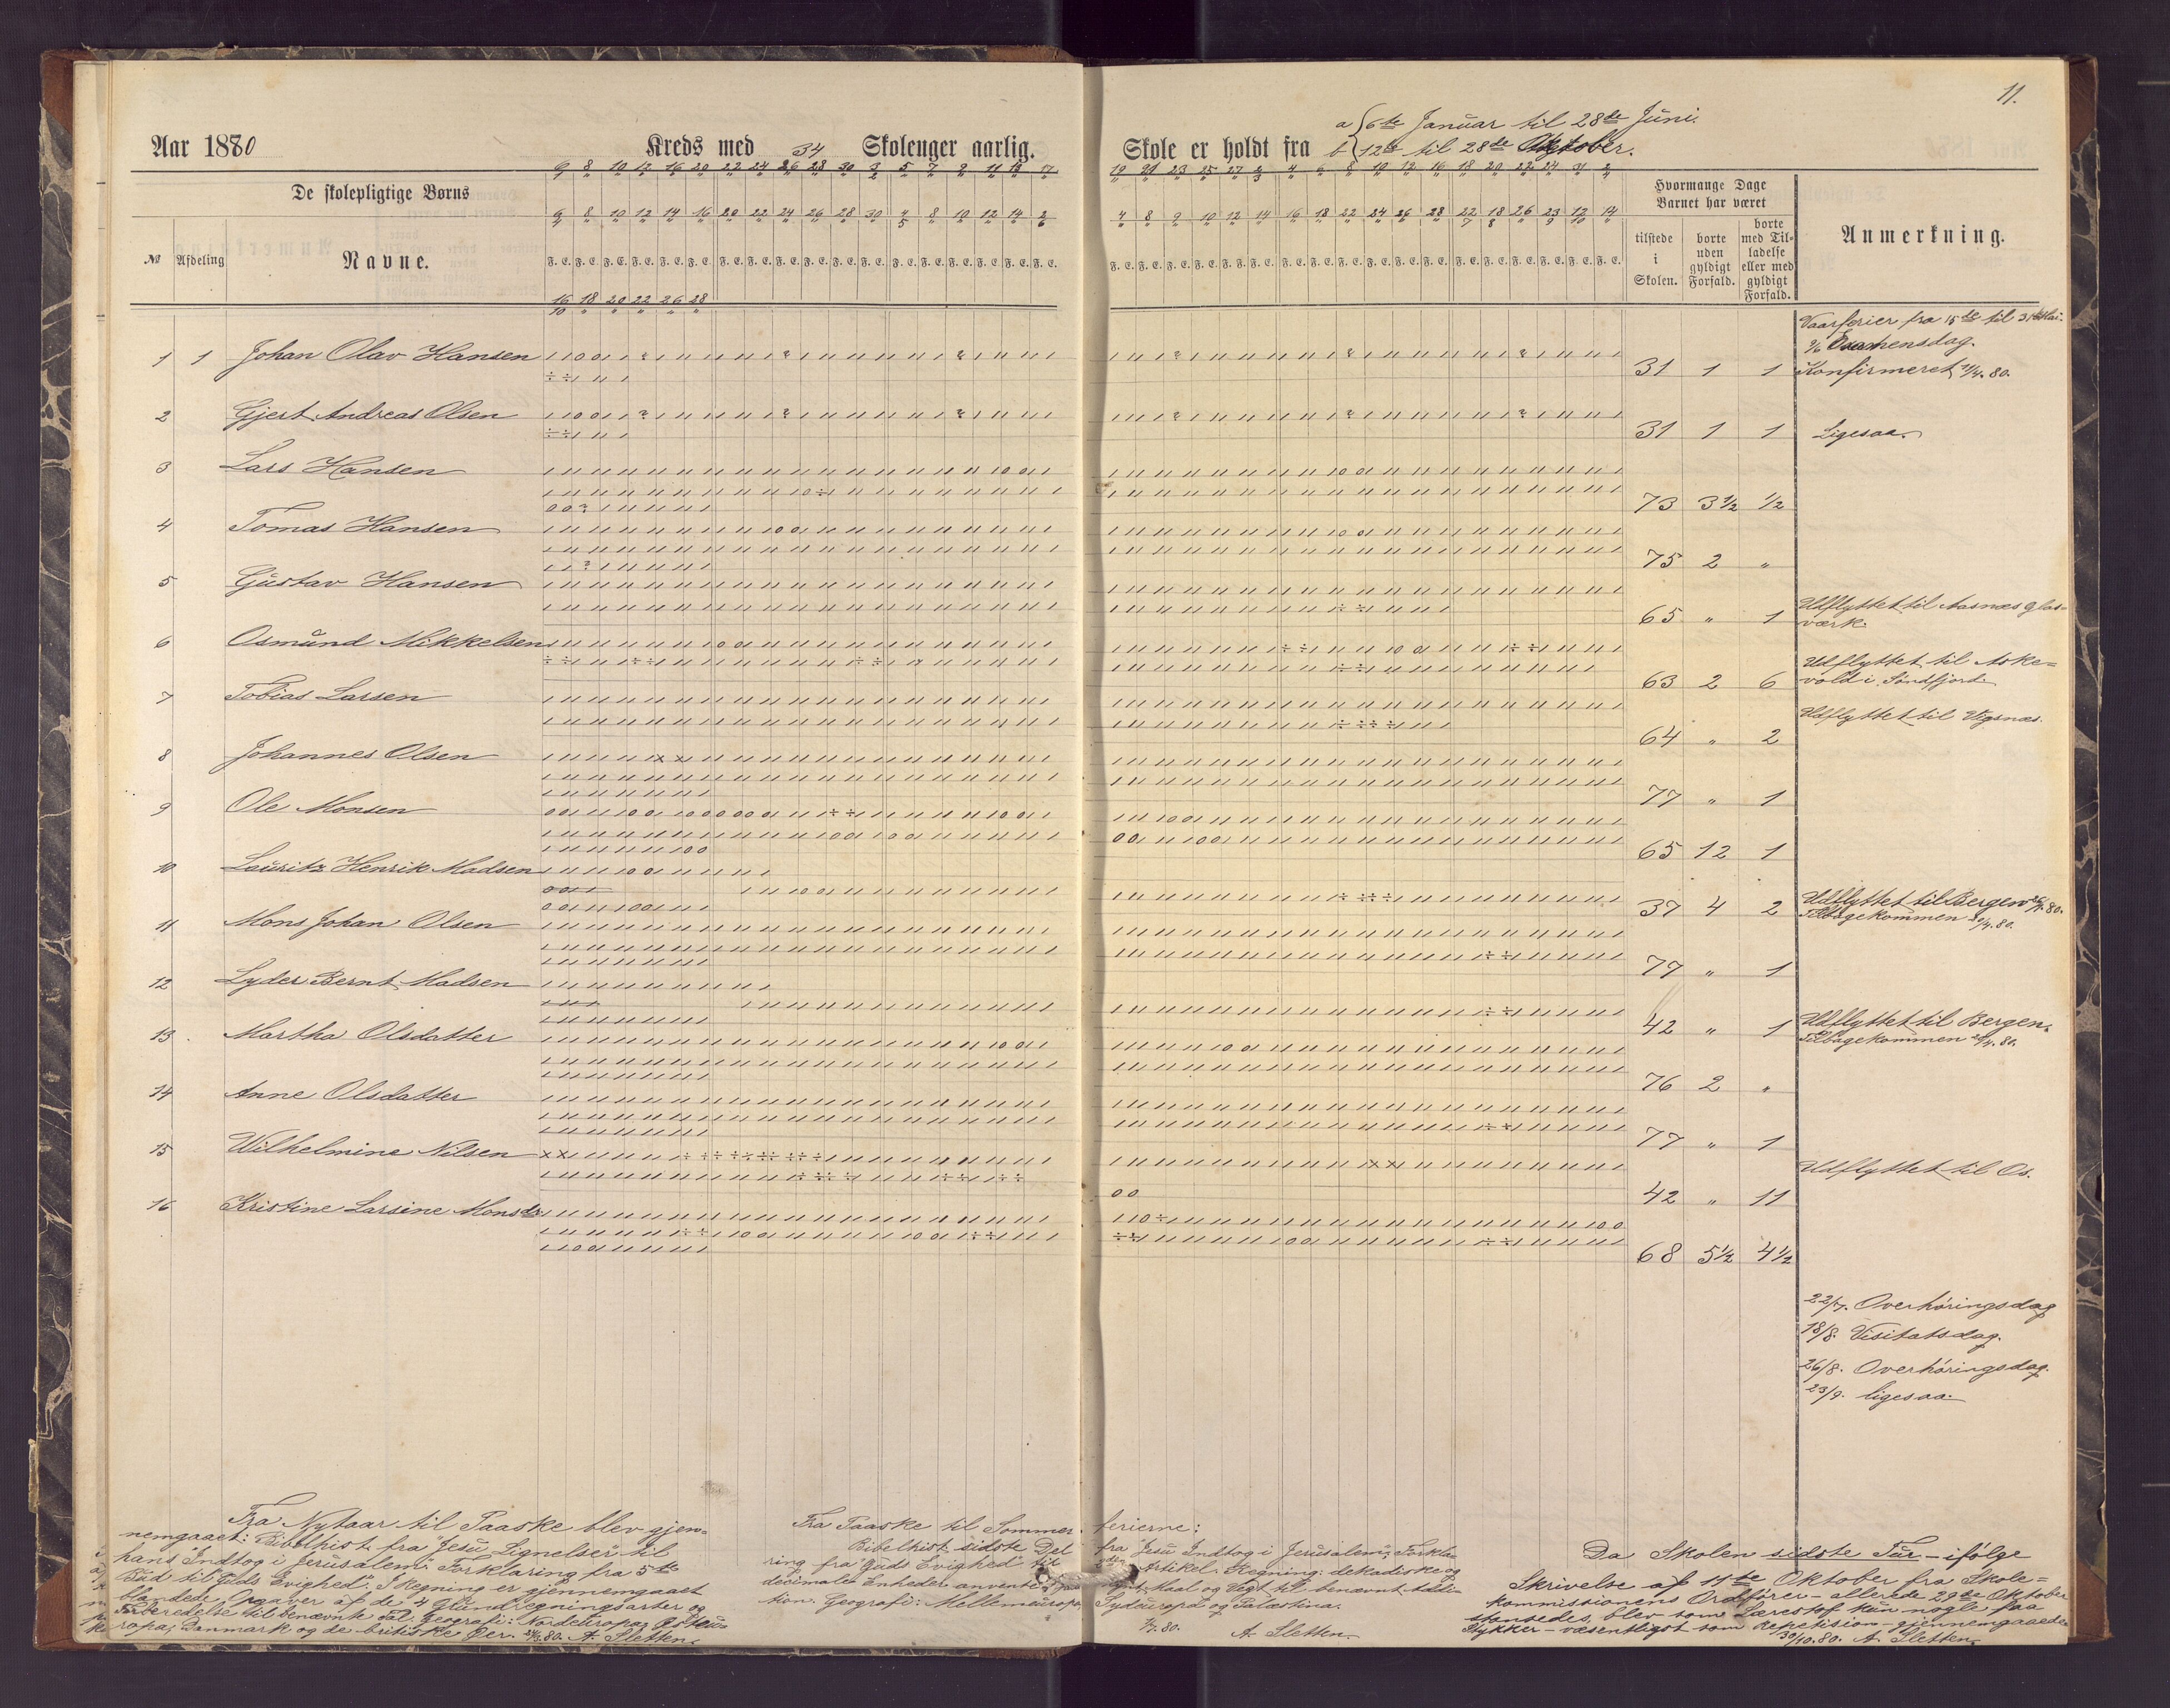 11.
Aar 1880 Kreds med 34 Skoleuger aarlig.
Skole er holdt fra a 6te Januar til 28de Juni.
b 12te til 28de Oktober.
De skolepligtige Børns
№ Afdeling Navne.
Hvormange Dage
Barnet har været
tilstede i Skolen.
borte uden gyldigt Forfald.
borte med Tilladelse eller med gyldigt Forfald.
Anmerkning.
6 8 10 12 16 20 22 24 26 28 30 3 5 7 9 11 13 17
6 8 10 12 14 16 20 22 24 26 28 30 4 8 10 12 14 2
16 18 20 22 26 28
Vaarferier fra 15de til 31 Mai.
2/6 Examensdag.
1 1 Johan Olav Hansen 31 1 1 Konfirmeret 11/4. 80.
2 Gjert Andreas Olsen 31 1 1 Ligesaa.
3 Lars Hansen 73 3 1/2 1/2
4 Tomas Hansen 75 2 "
5 Gustav Hansen 65 " 1 Udflyttet til Aasnæs glas-
værk.
6 Osmund Mikkelsen 63 2 6 Udflyttet til Aske=
vold i Søndfjord.
7 Tobias Larsen 64 " 2 Udflyttet til Vigsnæs.
8 Johannes Olsen 77 " 1
9 Ole Monsen 65 12 1
10 Lauritz Henrik Madsen 37 4 2 Udflyttet til Bergen
Tilbagekommen
11 Mons Johan Olsen 77 " 1
12 Lyder Bernt Madsen 42 " 1 Udflyttet til Bergen.
Tilbagekommen
13 Martha Olsdatter 76 2 "
14 Anne Olsdatter 77 " 1
15 Wilhelmine Nilsen 42 " 11 Udflyttet til Os.
16 Kristine Larsine Monsdr. 68 5 1/2 4 1/2
22/7. Overhøringsdag
18/8. Visitatsdag.
26/8. Overhøringsdag.
23/9. ligesaa.
Fra Nytaar til Paaske blev gjen=
nemgaaet: Bibelhist. fra "Jesu Lignelser" til
hans "Indtog i Jerusalem". Forklaring fra 5te
Bud til "Guds Evighed". I Regning er gjennemgaaet
blandede Opgaver af de 4 Grundregningsarter og
Forberedelse til benævnte Tal. Geografi: Nordeuropa, Østeu=
ropa, Danmark og de britiske Øer. A. Sletten.
Fra Paaske til Sommerferierne:
Bibelhist. sidste Del fra Jesu Indtog i Jerusalem; Forkla=
ring fra "Guds Evighed" til Artikel. Regning: dekadiske og
decimale Enheder anvente paa Mynt, Maal og Vegt til benævnt Addi=
tion. Geografi: Mellemeuropa, Sydeuropa og Palestina.
1/7. 80. A. Sletten.
Da Skolen sidste Tur - ifølge
Skrivelse af 11te Oktober fra Skole=
kommissionens Ordfører - allerede 29de Oktober
stansedes, blev som Lærestof kun nogle faa
Stykker - væsentligst som Repetision - gjennemgaaede.
30/10. 80. A. Sletten.